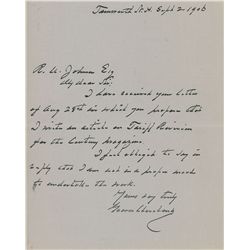 Tamworth N.H. Sept 2 1906
R. U. Johnson Esq
My dear Sir,
I have received your letter
of Aug 28th in which you propose that
I write an article on Tariff Revision
for the Century Magazine.
I feel obliged to say in
reply that I am not in a proper mood
to undertake the work.
Yours very truly
Grover Cleveland